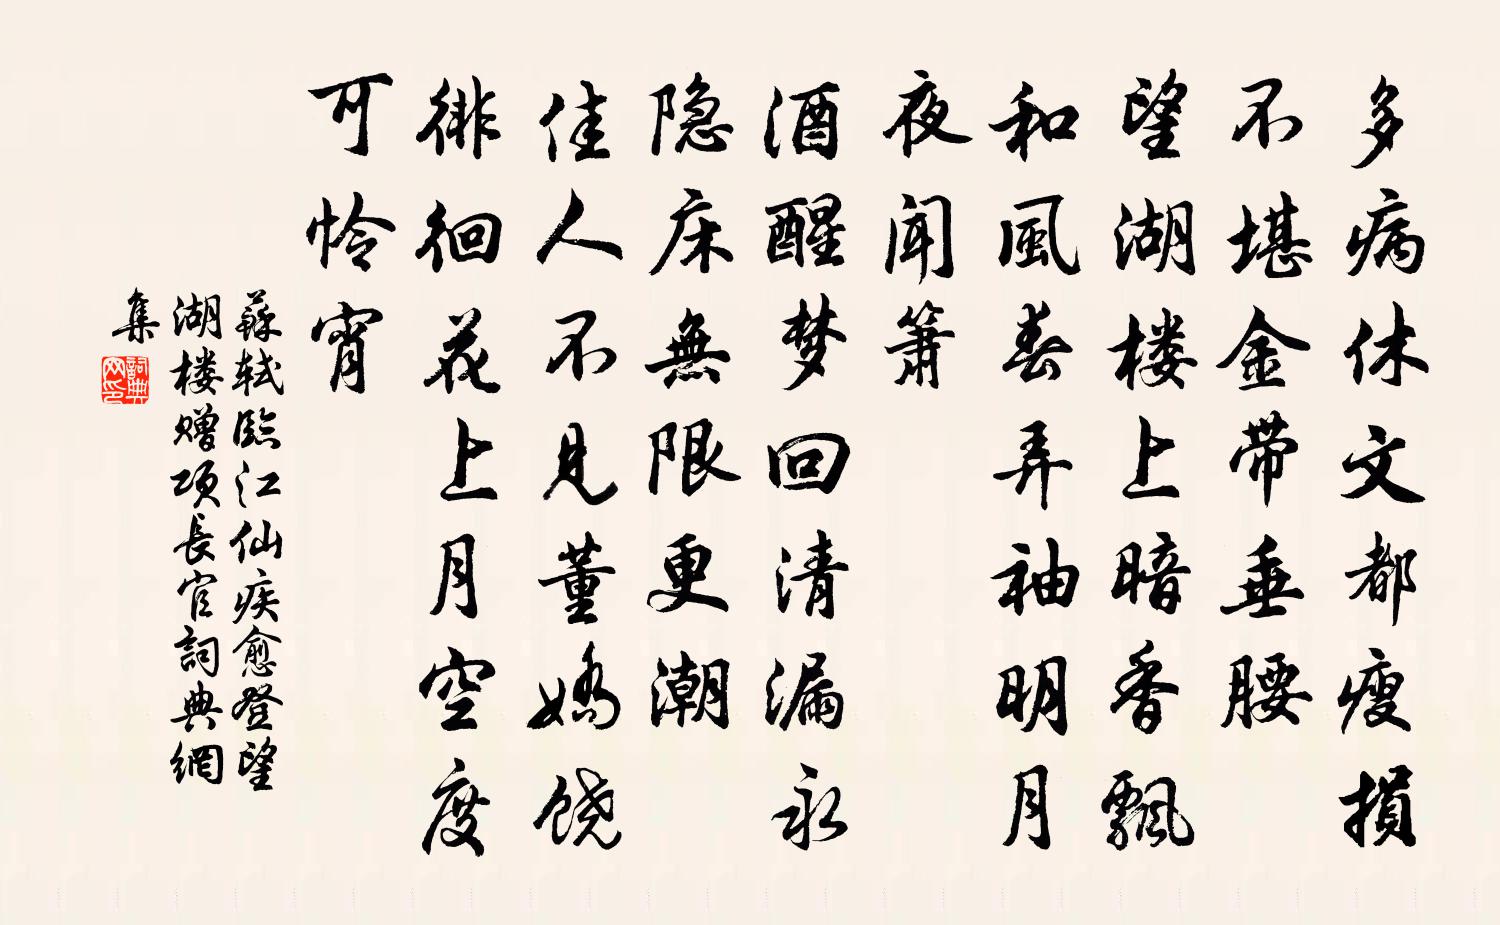 多病休文都瘦損
不堪金带垂腰
望湖楼上暗香飄
和風春弄袖明月
夜闻箫
酒醒梦回清漏永
隐床無限更潮
佳人不見董嬌饶
徘徊花上月空度
可怜宵
蘇轼臨江仙疾愈登望
湖楼赠项長官詞典網
集
詞典网印